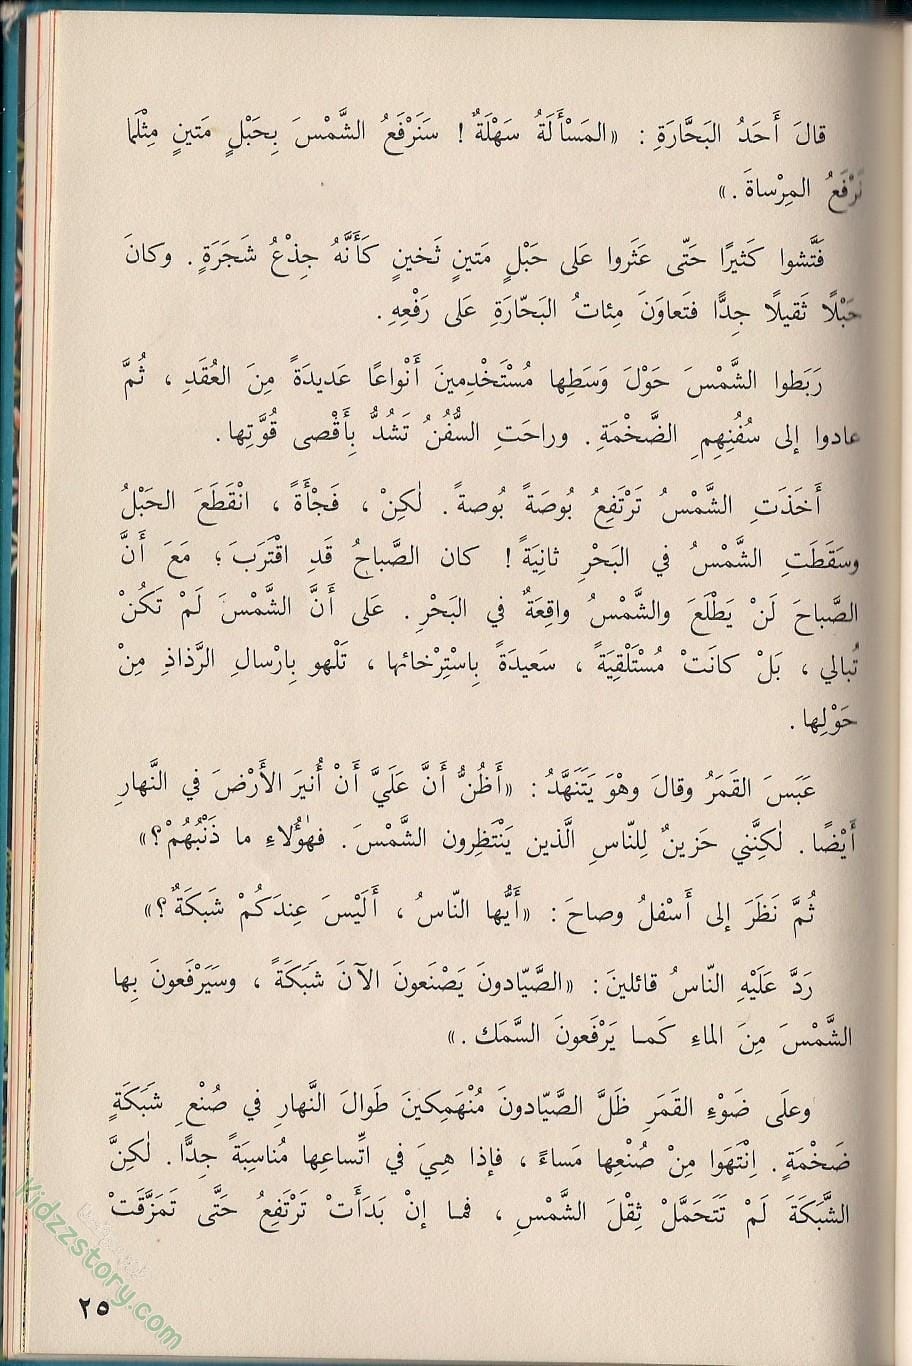 قالَ أَحَدُ البَحَّارَةِ : «المَسْأَلَةُ سَهْلَةٌ ! سَنَرْفَعُ الشَّمْسَ بِحَبْلٍ مَتينٍ مِثْلَما
نَرْفَعُ المِرْساةَ .»
فَتَّشوا كَثيرًا حَتّى عَثَروا عَلى حَبْلٍ مَتينٍ ثَخينٍ كَأَنَّهُ جِذْعُ شَجَرَةٍ . وكانَ
حَبْلًا ثَقيلًا جِدًّا فتَعاوَنَ مِئاتُ البَحّارَةِ عَلى رَفْعِهِ .
رَبَطوا الشَّمْسَ حَوْلَ وَسَطِها مُسْتَخْدِمينَ أَنْواعًا عَديدَةً مِنَ العُقَدِ ، ثُمَّ
عادوا إلى سُفُنِهِمِ الضَّخْمَةِ . وراحَتِ السُّفُنُ تَشُدُّ بِأَقْصى قُوَّتِها .
أَخَذَتِ الشَّمْسُ تَرْتَفِعُ بُوصَةً بُوصةً . لٰكِنْ ، فَجْأَةً ، انْقَطَعَ الحَبْلُ
وسَقَطَتِ الشَّمْسُ في البَحْرِ ثانِيَةً ! كان الصَّباحُ قَدِ اقْتَرَبَ ؛ مَعَ أَنَّ
الصَّباحَ لَنْ يَطْلَعَ والشَّمْسُ واقِعَةٌ في البَحْرِ . عَلى أَنَّ الشَّمْسَ لَمْ تَكُنْ
تُبالي ، بَلْ كانَتْ مُسْتَلْقِيَةً ، سَعيدَةً بِاسْتِرْخائها ، تَلْهو بِارْسالِ الرَّذاذِ مِنْ
حَوْلِها .
عَبَسَ القَمَرُ وقالَ وهْوَ يَتَنَهَّدُ : «أَظُنُّ أَنَّ عَلَيَّ أَنْ أُنيرَ الأَرْضَ في النَّهارِ
أَيْضًا . لٰكِنَّني حَزينٌ لِلنّاسِ الَّذين يَنْتَظِرون الشَّمْسَ . فهٰؤُلاءِ ما ذَنْبُهُمْ ؟»
ثُمَّ نَظَرَ إلى أَسْفلُ وصاحَ : «أَيُّها النّاسُ ، أَلَيْسَ عِندَكُمْ شَبكَةٌ ؟»
رَدَّ عَلَيْهِ النّاسُ قائلينَ : «الصَّيّادونَ يَصْنَعونَ الآنَ شَبَكَةً ، وسَيَرْفَعونَ بِها
الشَّمْسَ مِنَ الماءِ كَمـا يَرْفَعونَ السَّمَك .»
وعلَى ضَوْءِ القَمَرِ ظَلَّ الصَّيّادونَ مُنْهَمِكينَ طَوالَ النَّهارِ في صُنْعِ شَبَكَةٍ
ضَخْمَةٍ . اِنْتَهَوا مِنْ صُنْعِها مَساءً ، فإذا هِيَ في اتِّساعِها مُناسِبَةً جِدًّا . لٰكِنَّ
الشَّبَكَةَ لَمْ تَتَحَمَّلْ ثِقْلَ الشَّمْسِ ، فمـا إنْ بَدَأَتْ تَرْتَفِعُ حَتَّى تَمَزَّقَتْ
٢٥
Kidzzstory.com